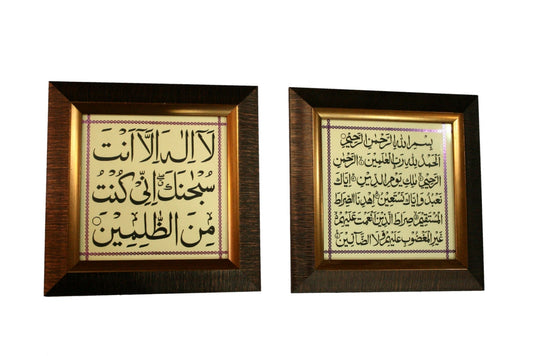 لَآ اِلٰهَ اِلَّآ اَنْتَ
سُبْحٰنَكَ اِنِّیْ كُنْتُ
مِنَ الظّٰلِمِیْنَ
بِسْمِ اللهِ الرَّحْمٰنِ الرَّحِیْمِ
اَلْحَمْدُ لِلّٰهِ رَبِّ الْعٰلَمِیْنَ الرَّحْمٰنِ
الرَّحِیْمِ مٰلِكِ یَوْمِ الدِّیْنِ اِیَّاكَ
نَعْبُدُ وَاِیَّاكَ نَسْتَعِیْنُ اِهْدِنَا الصِّرَاطَ
الْمُسْتَقِیْمَ صِرَاطَ الَّذِیْنَ اَنْعَمْتَ عَلَیْهِمْ
غَیْرِ الْمَغْضُوْبِ عَلَیْهِمْ وَلَا الضَّآلِّیْنَ